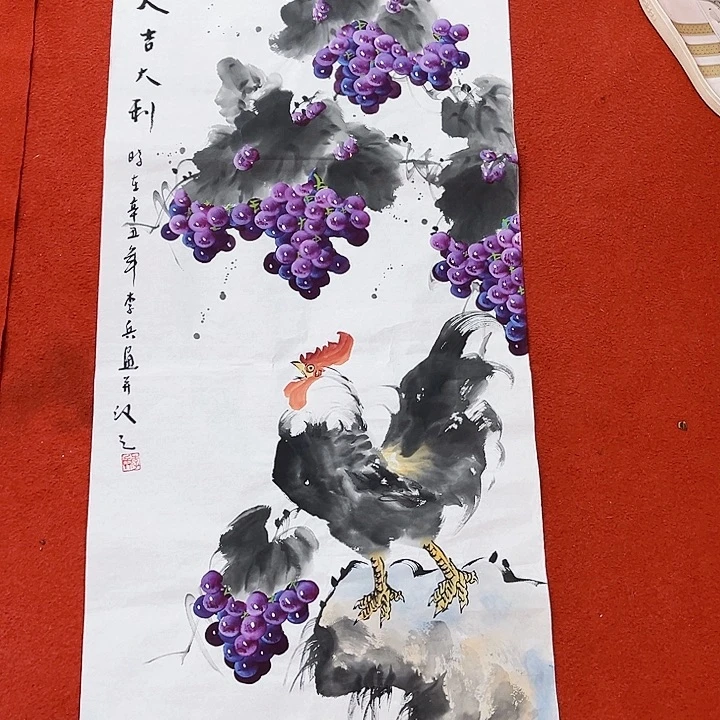 大吉大利
時在辛丑年李兵画并汉之